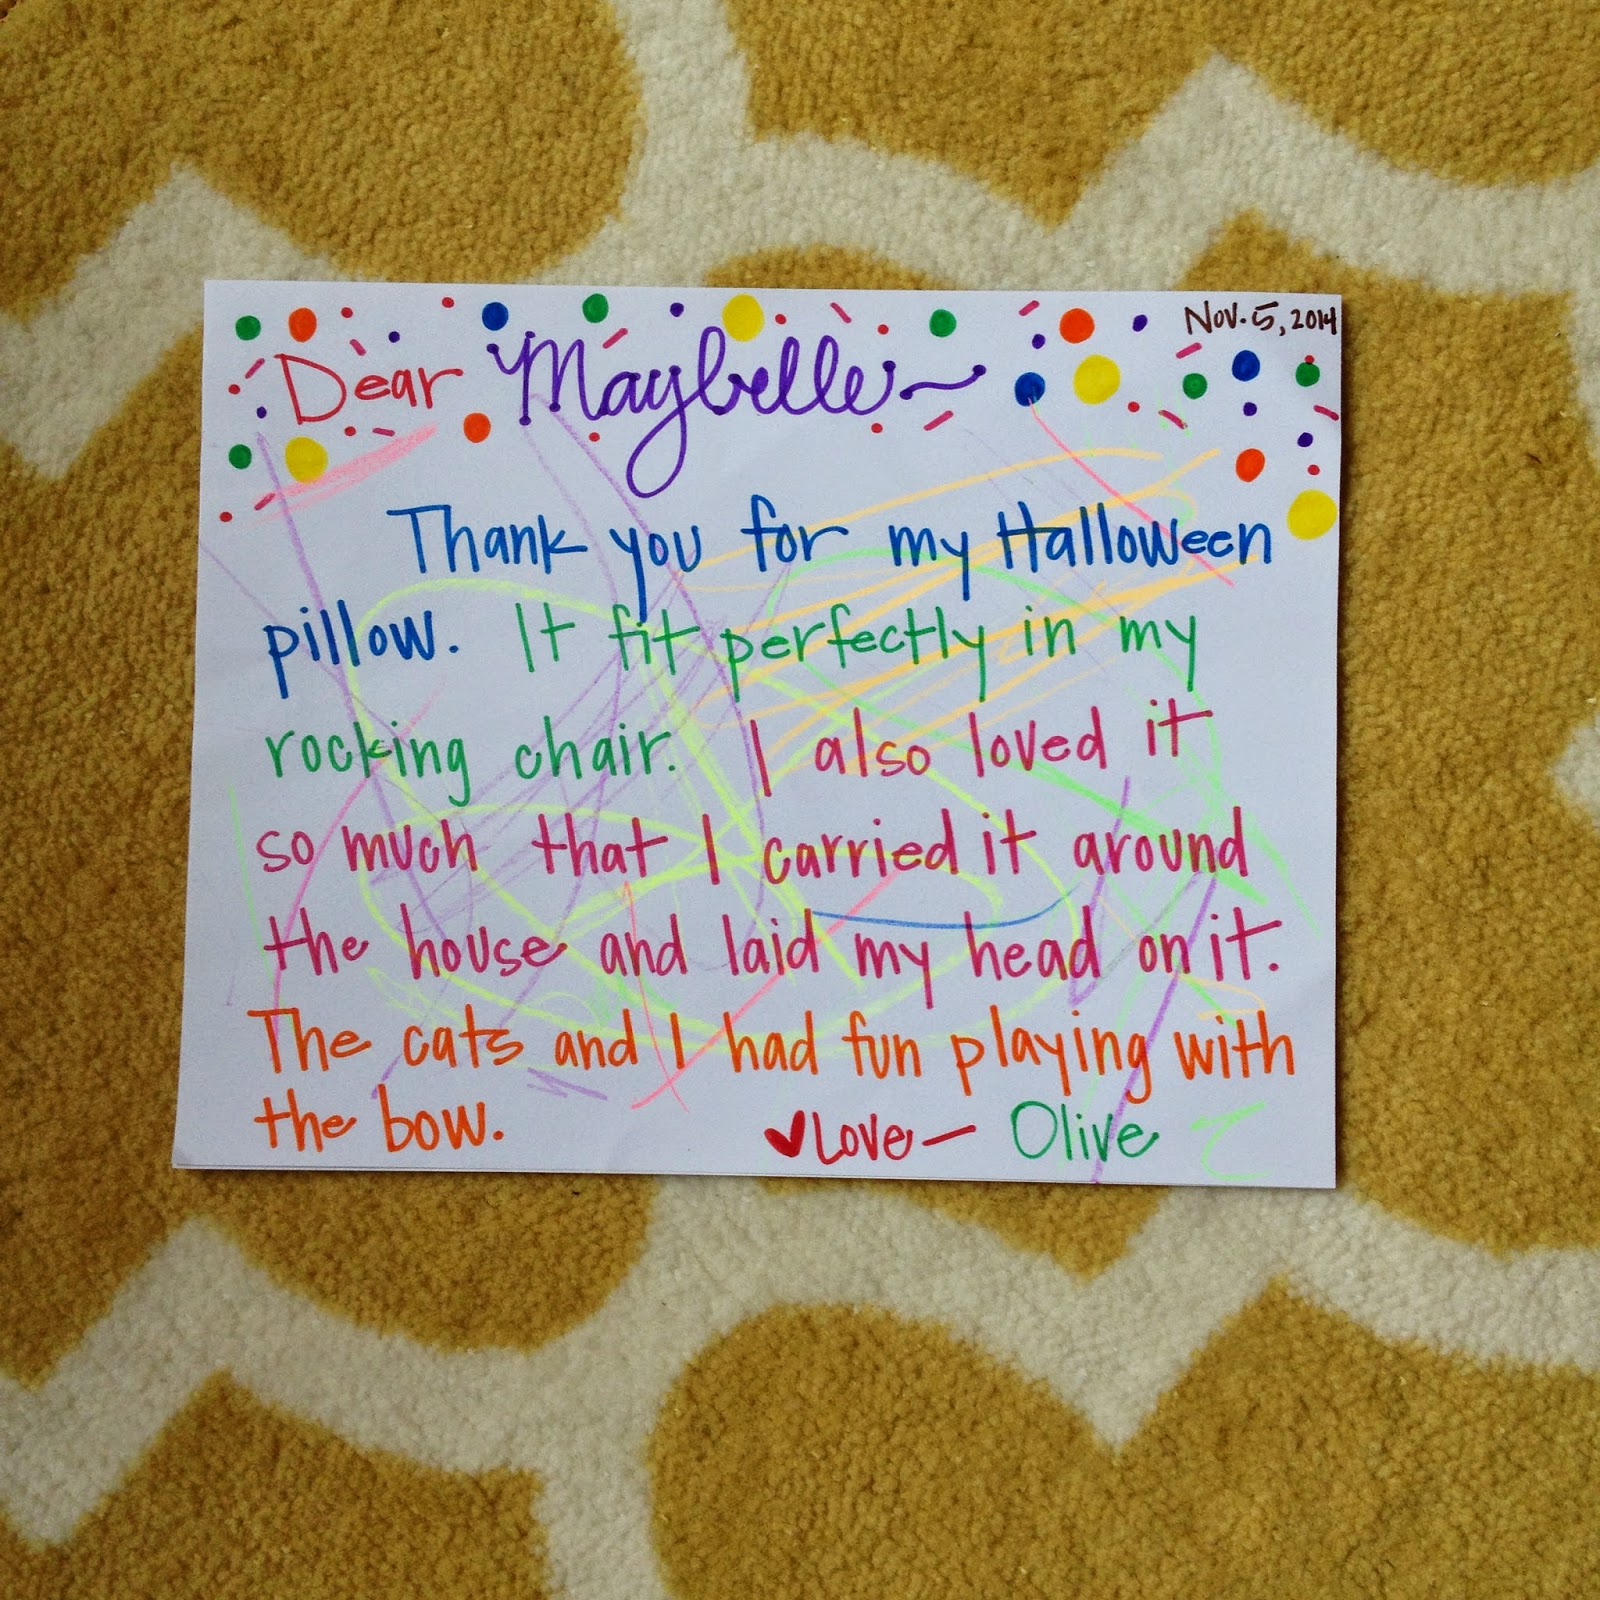 Nov. 5, 2014
Dear Maybelle~
Thank you for my Halloween
pillow. It fit perfectly in my
rocking chair. I also loved it
so much that I carried it around
the house and laid my head on it.
The cats and I had fun playing with
the bow. ♥Love— Olive